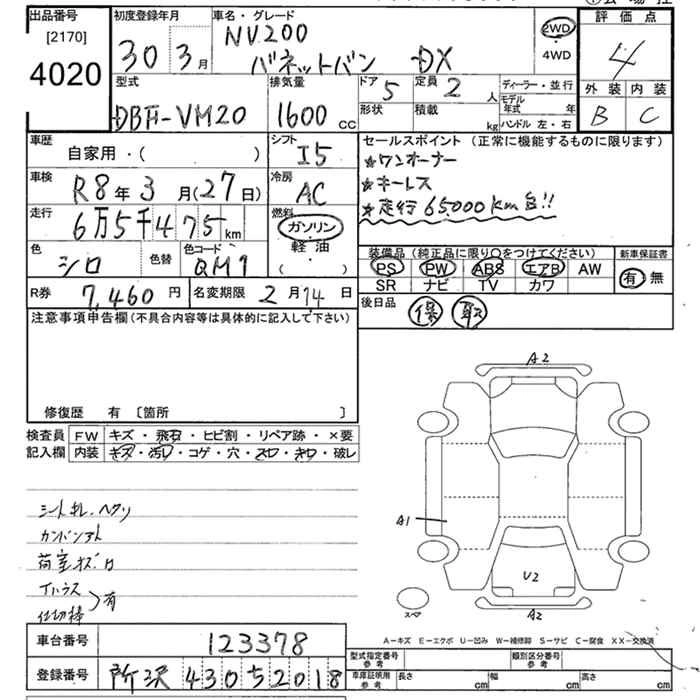 出品番号
[2170]
4020
初度登録年月
30年 3月
車名・グレード
NV200
バネットバン DX
2WD
・
4WD
評価点
4
外装 内装
B C
型式
DBF-VM20
排気量
1600cc
ドア 5
形状
定員 2人
積載 kg
ディーラー・並行
モデル年式 年
ハンドル 左・右
車歴
自家用・( )
シフト
I5
車検
R8年3月(27日)
冷房
AC
走行
6万5千475km
燃料
ガソリン
軽・油
・
( )
色
シロ
色替
色コード
QM1
セールスポイント (正常に機能するものに限ります)
★ワンオーナー
★キーレス
★走行65,000km台!!
装備品(純正品に限り〇をつけてください)
PS PW ABS エアB AW
SR ナビ TV カワ
新車保証書
有・無
R券 7,460円
名変期限 2月14日
後日品
保 取
注意事項申告欄(不具合内容等は具体的に記入して下さい)
修復歴 有 〔箇所 〕
検査員
記入欄
FW キズ・飛石・ヒビ割・リペア跡・×要
内装 キズ・汚レ・コゲ・穴・スロ・キロ・破レ
シートキレ・ヘタリ
カンバンアト
荷室キズ・ロ
仕切棒
有
A2
A1
U2
A2
スペア
A-キズ E-エクボ U-凹み W-補修跡 S-サビ C-腐食 XX-交換済
車台番号 123378
登録番号 所沢 430 5 2018
型式指定番号
参考
類別区分番号
参考
車庫証明用
参考
長さ cm
幅 cm
高さ cm